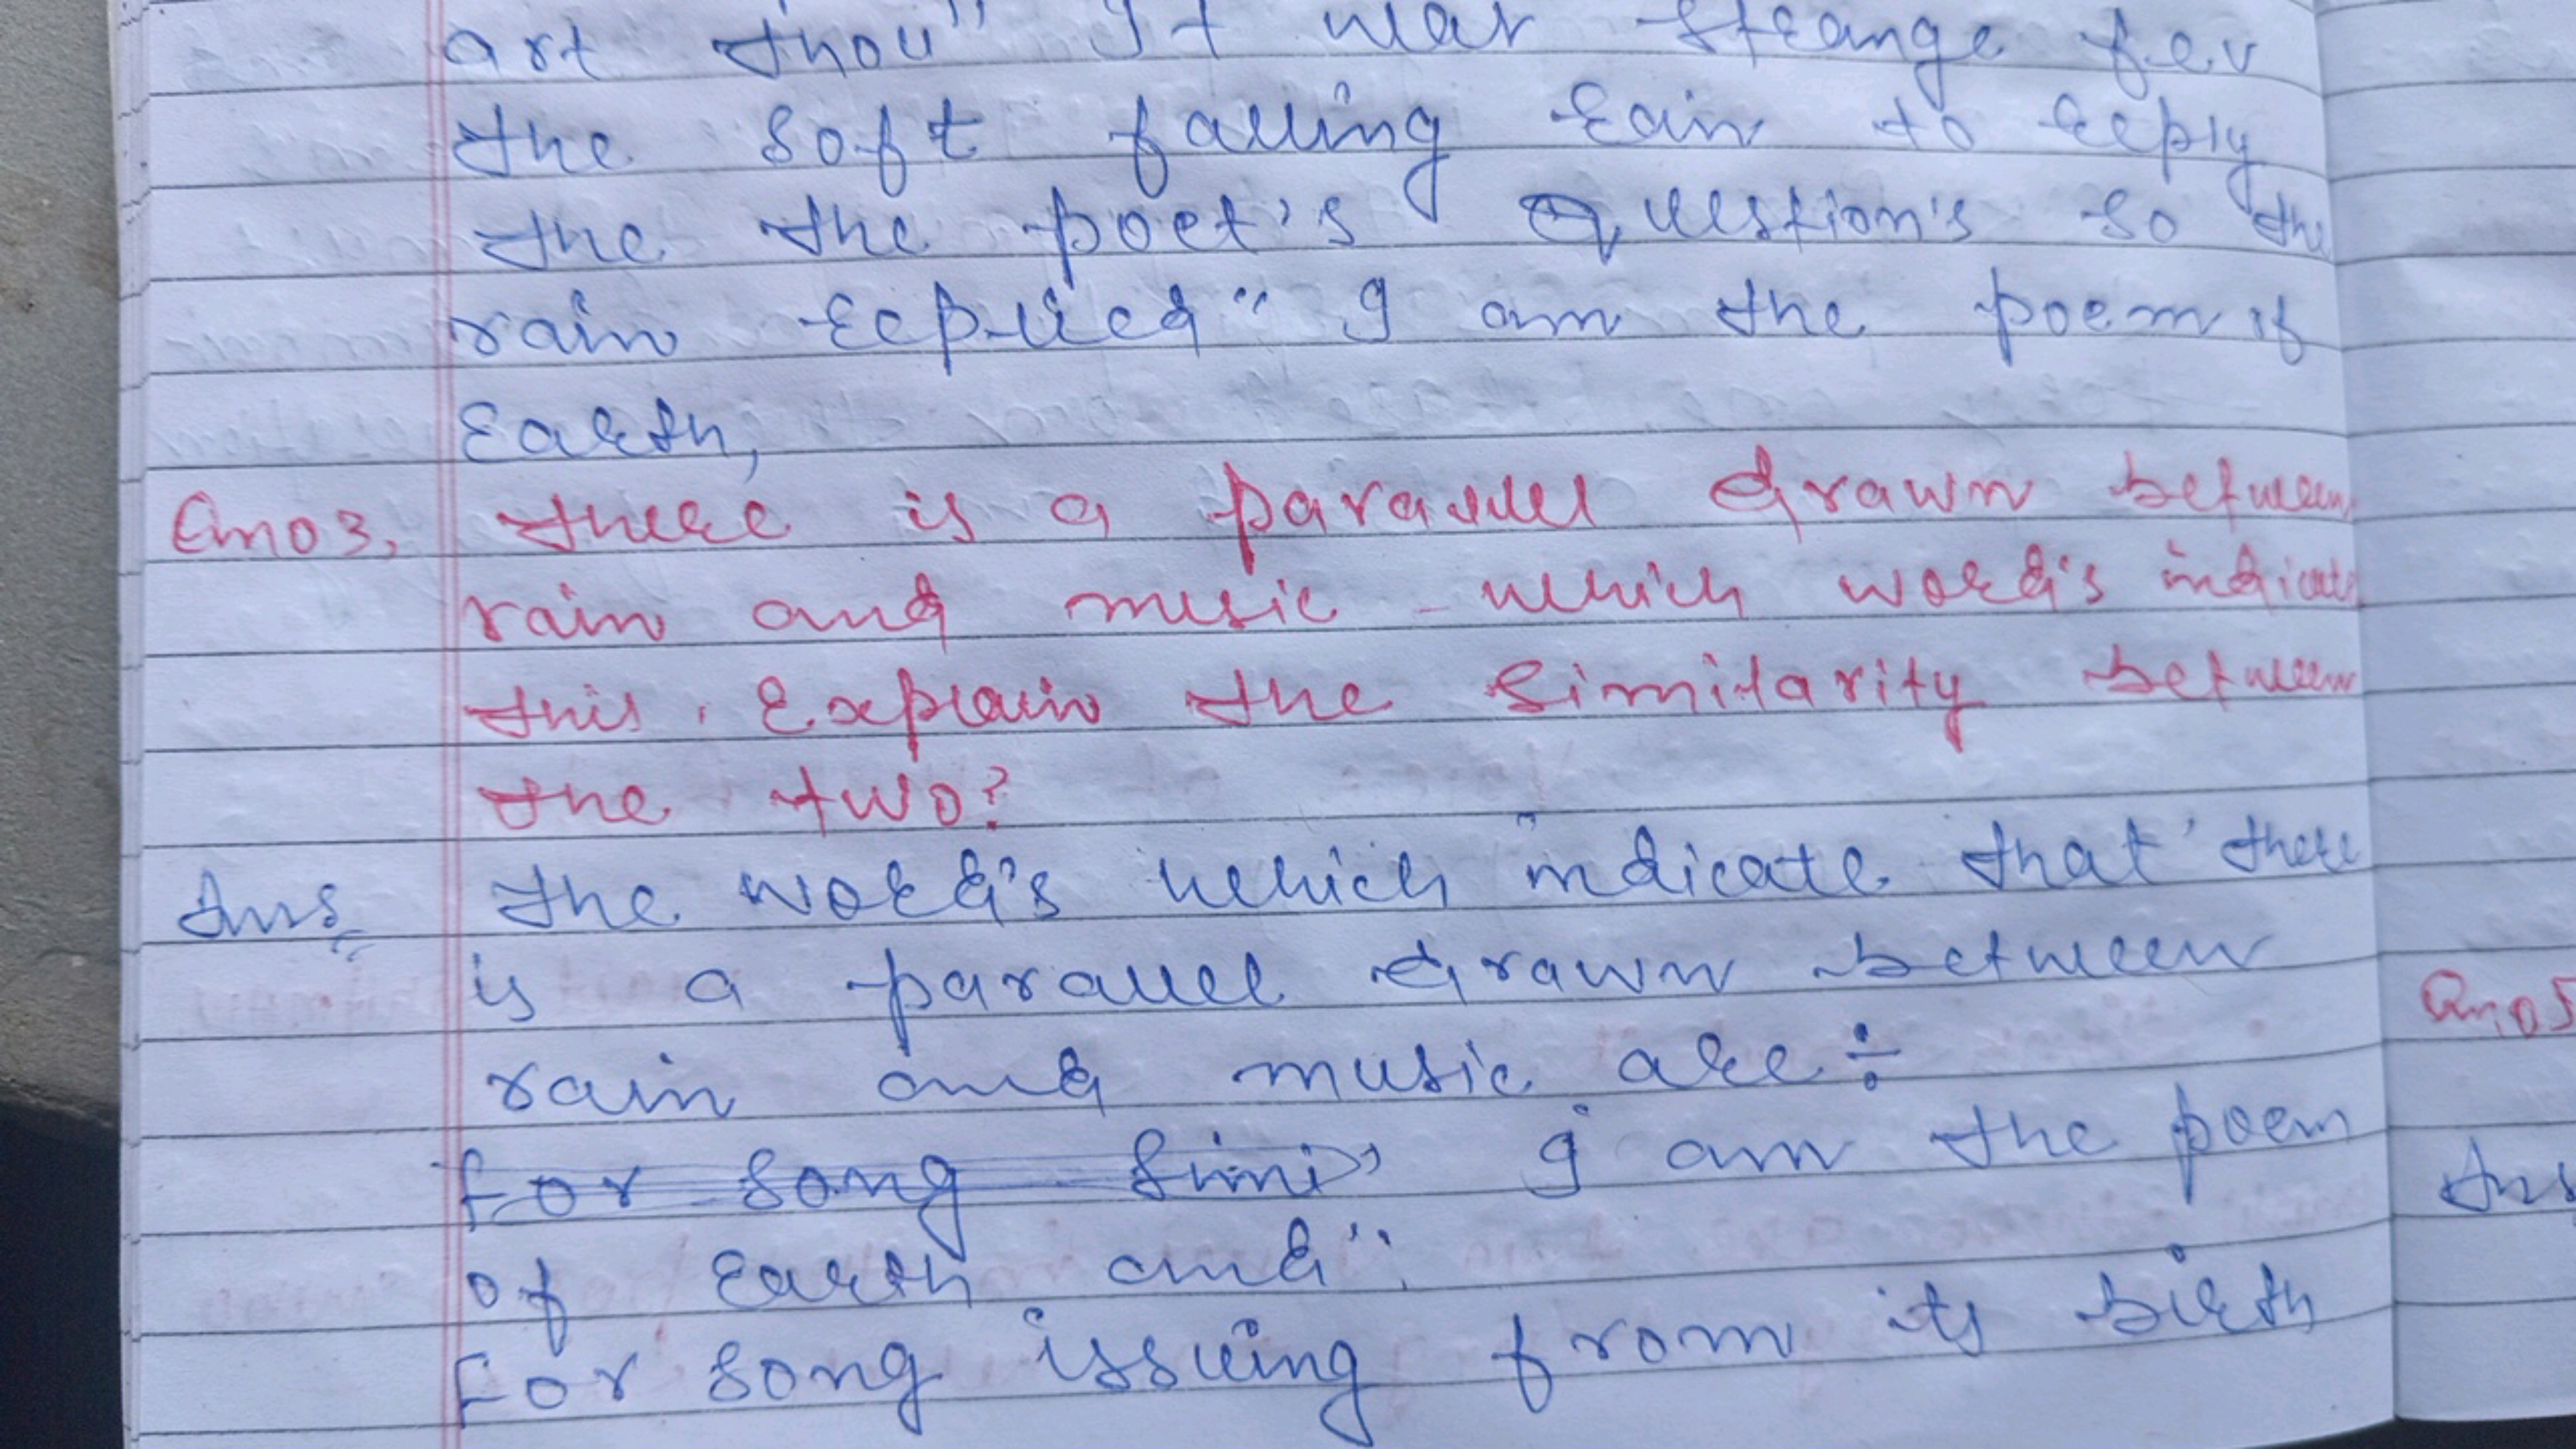 art thou" It was strange for
the soft falling rain to reply
the the poet's Question's so the
rain replied" I am the poem of
Earth,
Qno3. there is a parallel drawn between
rain and music - which word's indicate
this. Explain the similarity between
the two?
Ans the word's which indicate that' there
is a parallel drawn between
rain and music are÷
for song simi" I am the poem
of Earth and".
For song issuing from its birth
Qno5
Ans